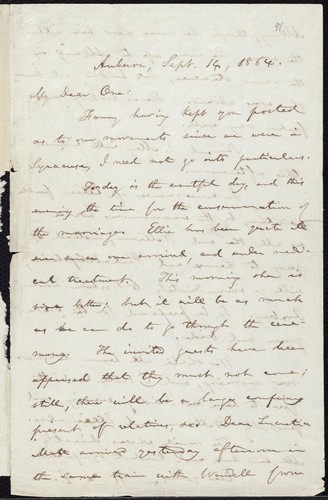 Auburn, Sept. 14, 1864.
My Dear One:
Fanny having kept you posted
as to our movements since we were in
Syracuse, I need not go into particulars.
To-day is the eventful day, and this
evening the time for the consummation of
the marriage. Ellie has been quite ill
ever since our arrival, and under medi-
cal treatment. This morning she is
better; but it will be as much
as she can do to go through the cere-
mony. The invited guests have been
apprised that they must not come;
still, there will be a large company
present of relatives, &c. Dear Lucretia
Mott arrived yesterday afternoon in
the same train with Wendell from